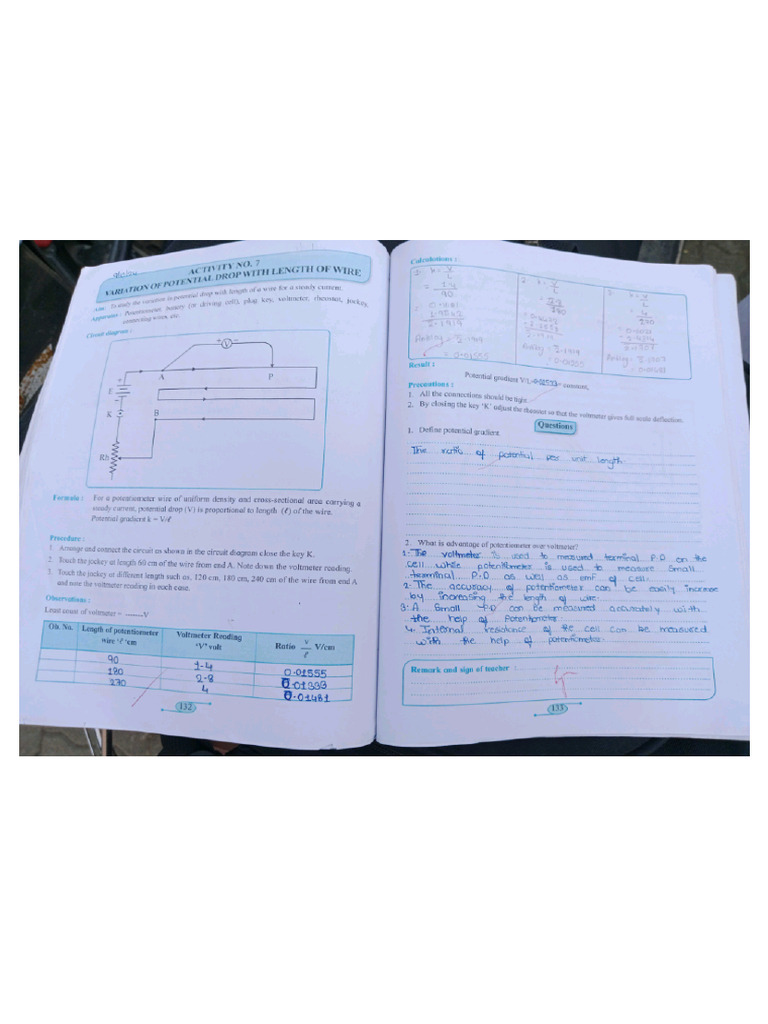 ACTIVITY NO. 7
VARIATION OF POTENTIAL DROP WITH LENGTH OF WIRE
Aim : To study the variation in potential drop with length of a wire for a steady current.
Apparatus : Potentiometer, battery (or driving cell), plug key, voltmeter, rheostat, jockey,
connecting wires, etc.
Circuit diagram :
+ V −
A P
+
E
−
K
B
Rh
Formula : For a potentiometer wire of uniform density and cross-sectional area carrying a
steady current, potential drop (V) is proportional to length (ℓ) of the wire.
Potential gradient k = V/ℓ
Procedure :
1. Arrange and connect the circuit as shown in the circuit diagram close the key K.
2. Touch the jockey at length 60 cm of the wire from end A. Note down the voltmeter reading.
3. Touch the jockey at different length such as, 120 cm, 180 cm, 240 cm of the wire from end A
and note the voltmeter reading in each case.
Observations :
Least count of voltmeter = ........V
Ob. No. Length of potentiometer wire 'ℓ' cm Voltmeter Reading 'V' volt Ratio V/ℓ V/cm
90 1.4 0.01555
180 2.8 0.01333
270 4 0.01481
132
Calculations :
k = V/L
= 1.4
90
Antilog
= 0.01555
k = V/L
Antilog
k = V/L
= 4
270
Antilog
= 0.01481
Result :
Potential gradient V/L = constant,
Precautions :
1. All the connections should be tight.
2. By closing the key 'K' adjust the rheostat so that the voltmeter gives full scale deflection.
Questions
1. Define potential gradient.
The ratio of potential per unit length.
2. What is advantage of potentiometer over voltmeter?
1. The voltmeter is used to measured terminal P.D on the
cell while potentiometer is used to measure small
terminal P.D as well as emf of cell.
2. The accuracy of potentiometer can be easily increase
by increasing the length of wire.
3. A small P.D can be measured accurately with
the help of Potentiometer
4. Internal resistance of the cell can be measured
with the help of potentiometer.
Remark and sign of teacher :
133